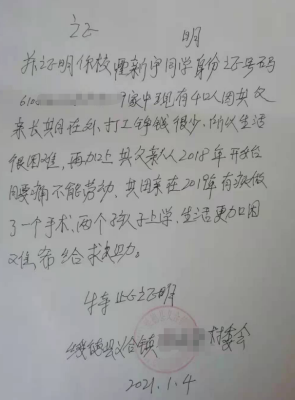 证 明
兹证明你校 新宇同学身份证号码
610 9家中现有4口人因其父
亲长其月在外打工挣钱很少,所以生活
很困难,再加上其父亲从2018年开始
间要痛不能劳动,其母亲在2019年有病做
了一个手术,两个孩子上学,生活更加困
难,希给求助。
特此证明
绥德县义合镇 村委会
2021.1.4